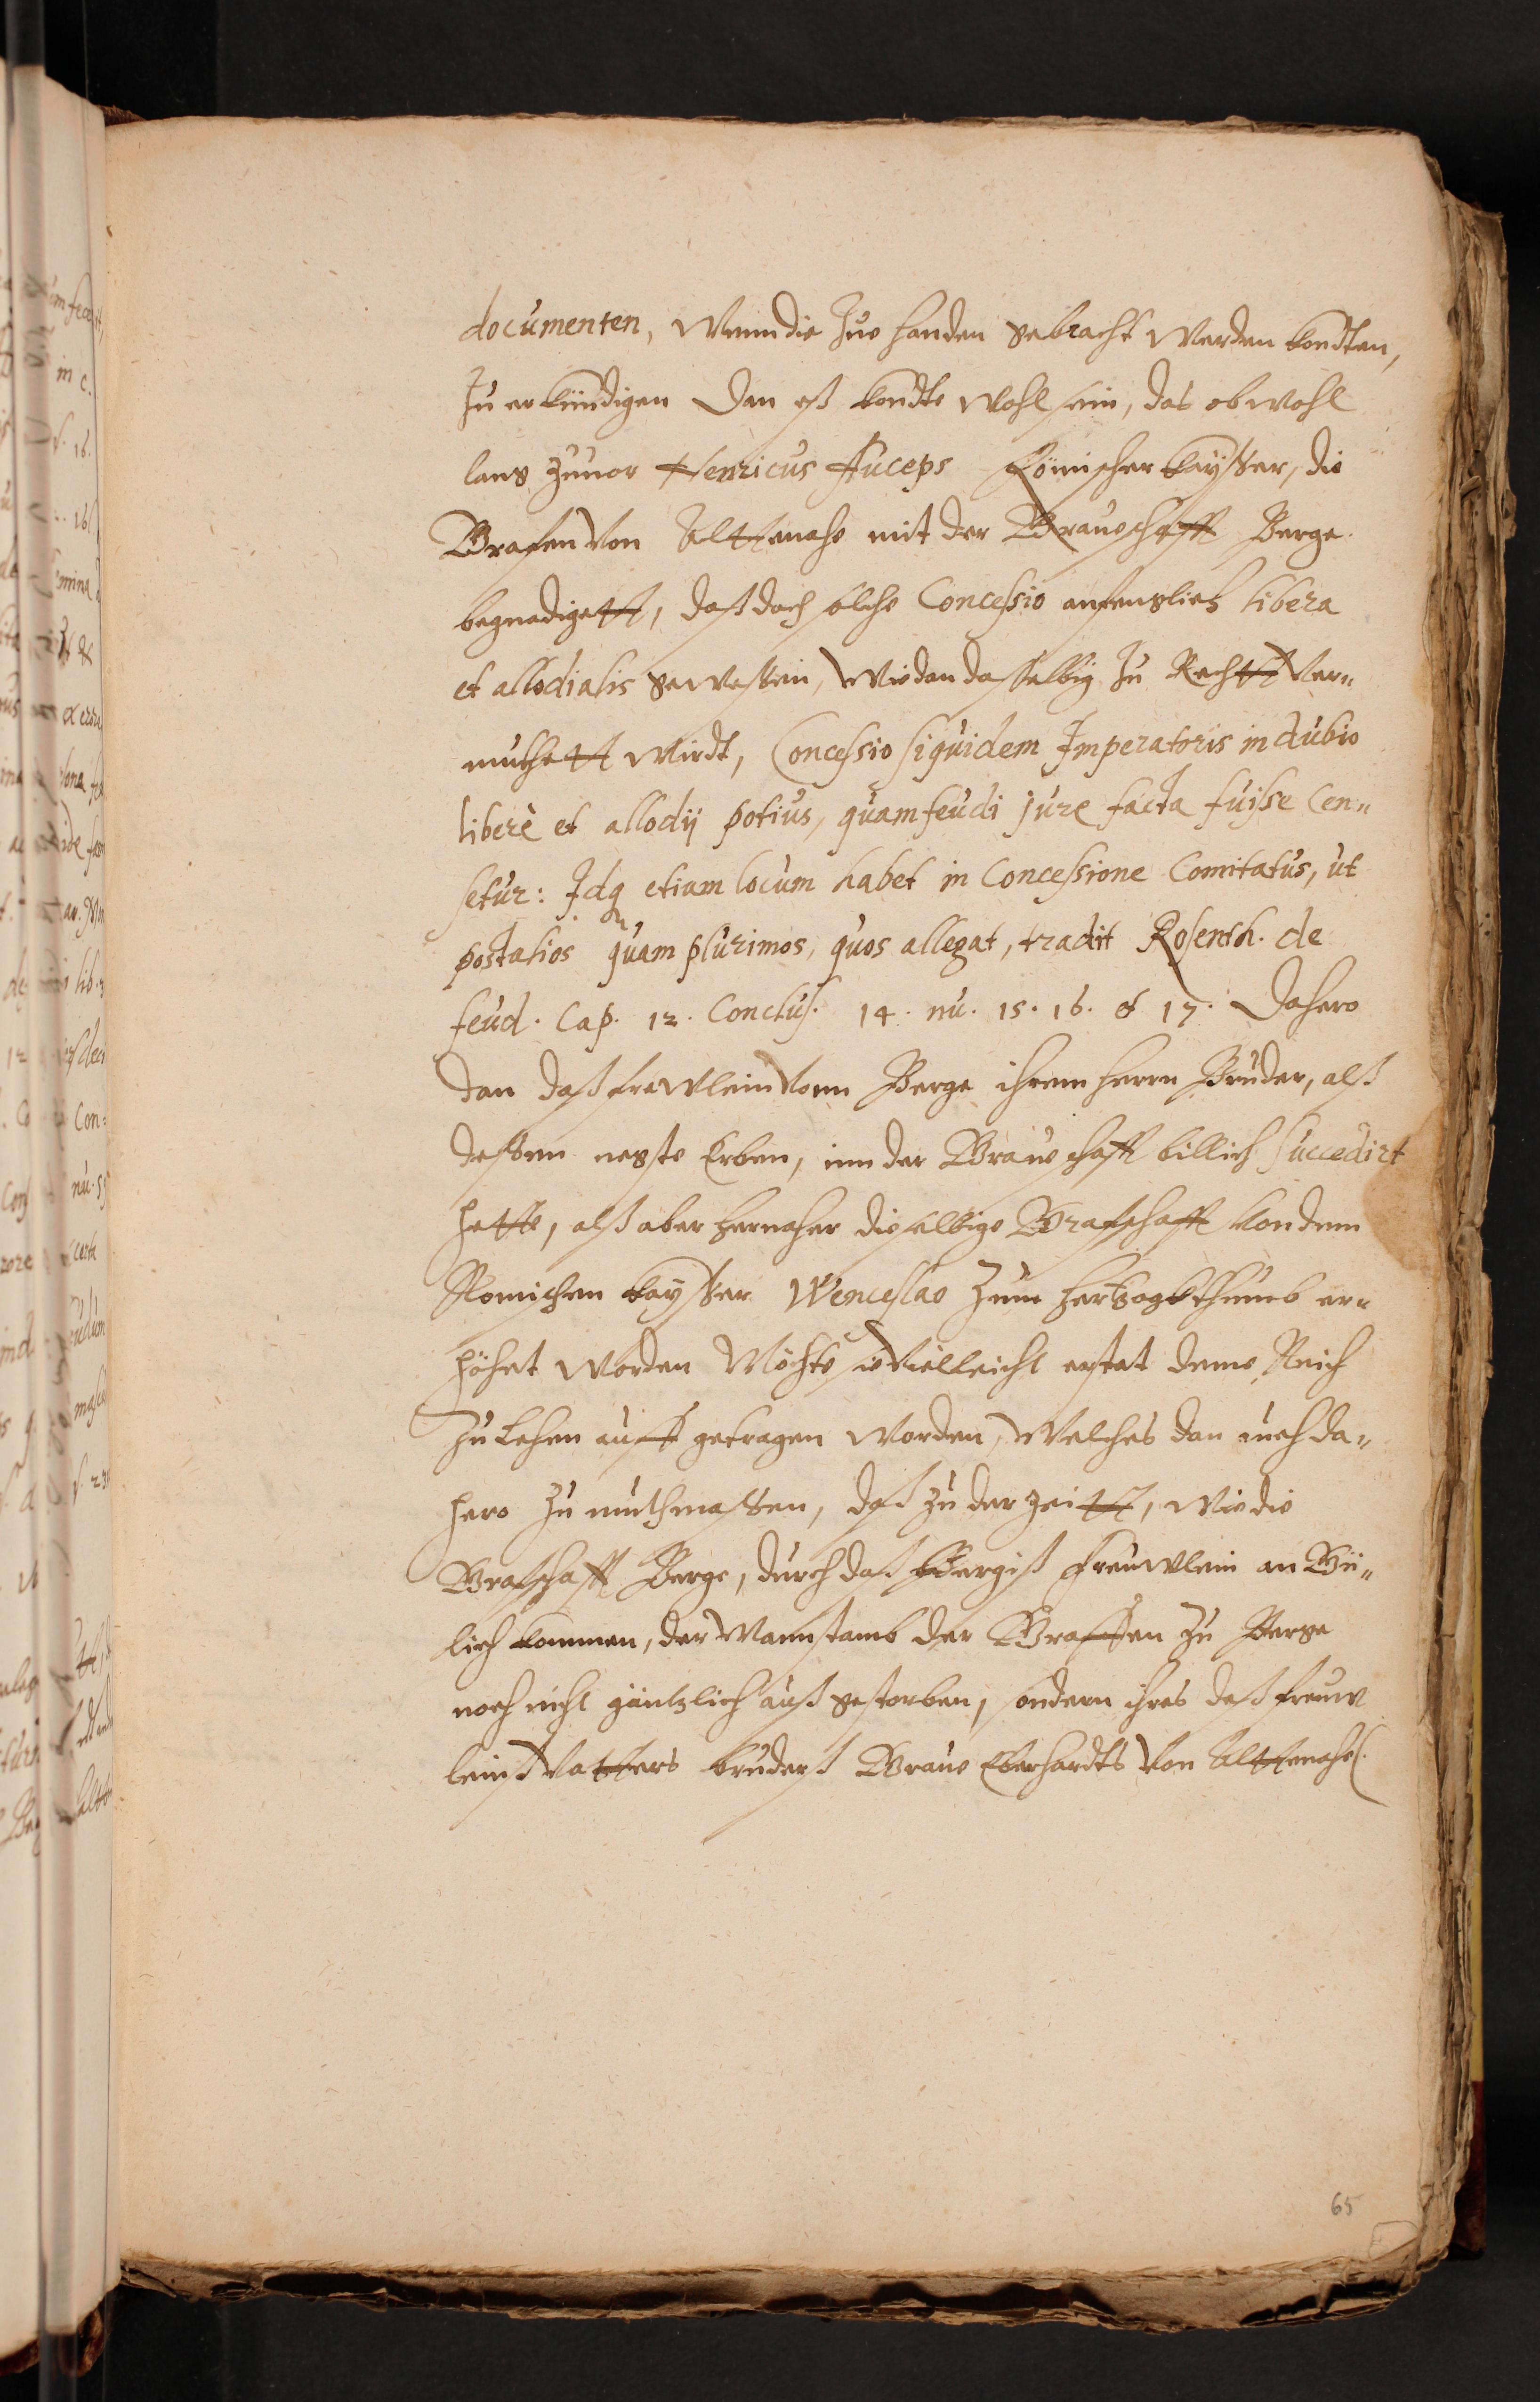 documenten, Wenn die Zue handen gebracht werden kondten,
Zu erkündigen Dan eß kondte wohl sein, das obwohl
lang zuuor Henricus Auceps Römischer Kaysser, die
Grafen von Alttenahe mit der Graueschafft Berge
begnadigett, daß doch solche Concessio anfenglich libera
et allodialis gewessen, Wie dan dasselbig Zu Rechtt ver„
muthett wirdt, Concessio siquidem Imperatoris in dubio
liberè et allodij potius, quam feudi jure facta fuisse cen„
setur: Idq etiam locum habet in Concessione Comitatus, ut
post alios quam plurimos, quos allegat, tradit Rosenth. de
feud. Cap. 12. Conclus. 14. nu. 15. 16. & 17. Dahero
dan daß frewlein vonn Berge ihrem herrn Bruder, alß
dessen negste Erben, inn der Graueschafft billich succedirt
hette, alß aber hernaher dieselbige Grafschafft von dem
Romischen Kaysser Wenceslao Zum Hertzogkthumb er„
höhet worden Möchte sie vielleicht erstat deme Reich
Zu Lehen auff getragen worden, Welches dan auch da„
hero Zu muthmassen, daß zu der zeitt, wie die
Grafschafft Berge, durch daß Bergisß Freuwlein an Gü„
lich kommen, der Mannstamb der Graffen zu Berge
noch nicht gäntzlich auß gestorben, sondern ihres deß freuw
leinß Vatters bruderß Graue Eberhardts von Alttenahe
65